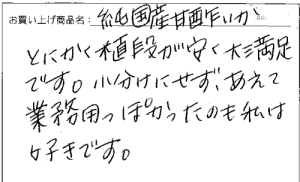 お買い上げ商品名：純国産甘酢いか
とにかく値段が安く大満足
です。小分けにせず、あえて
業務用っぽかったのも私は
好きです。